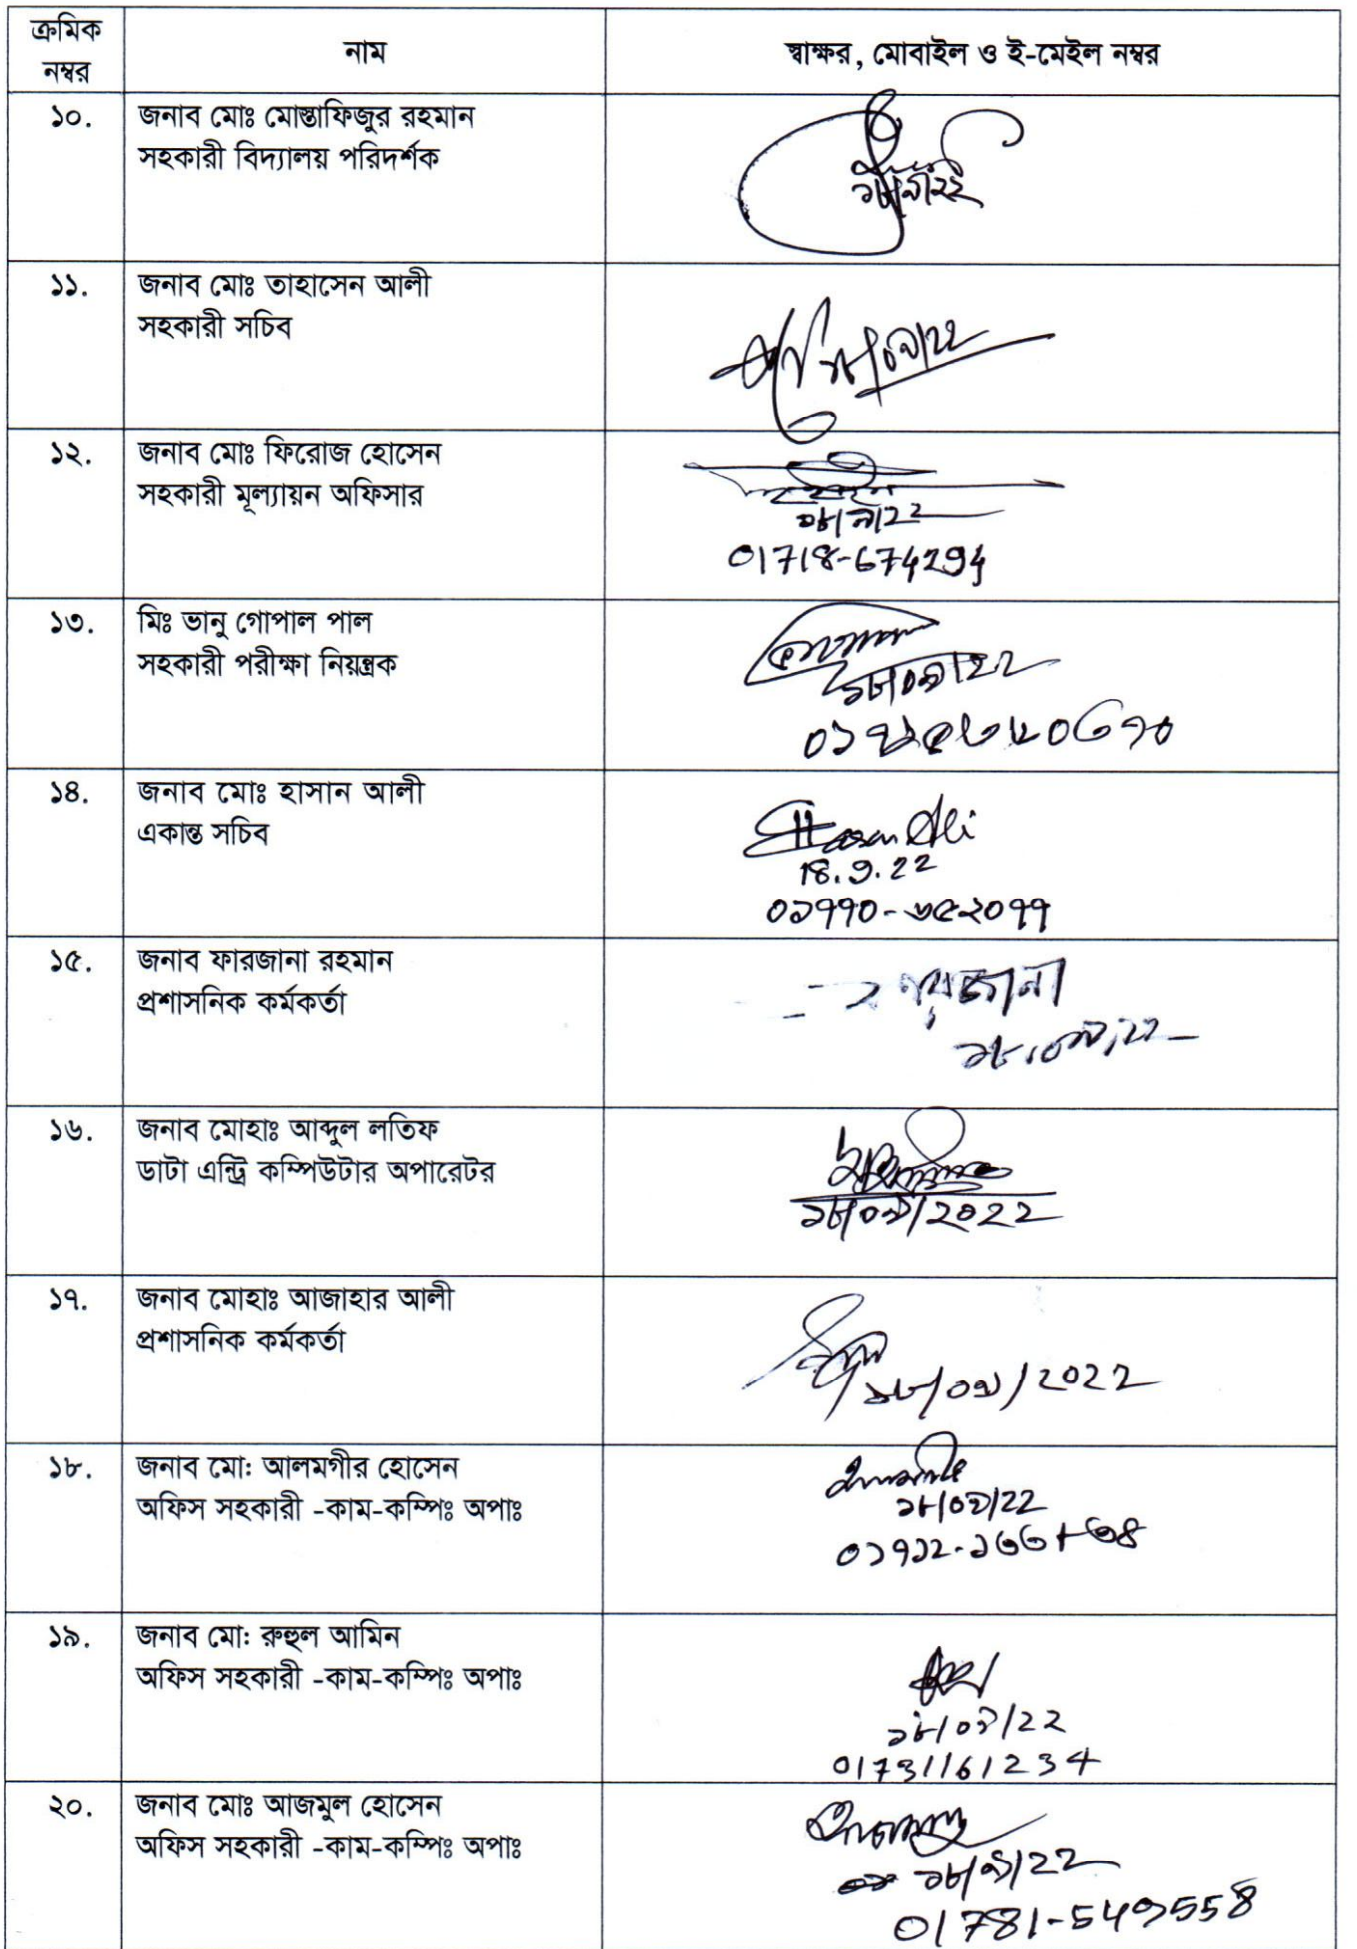 ক্রমিক নম্বর	নাম	স্বাক্ষর, মোবাইল ও ই-মেইল নম্বর
১০.	জনাব মোঃ মোস্তাফিজুর রহমান
সহকারী বিদ্যালয় পরিদর্শক
১৮/৯/২২
১১.	জনাব মোঃ তাহাসেন আলী
সহকারী সচিব
১৮/০৯/২২
১২.	জনাব মোঃ ফিরোজ হোসেন
সহকারী মূল্যায়ন অফিসার
১৮/৯/২২
01718-674294
১৩.	মিঃ ভানু গোপাল পাল
সহকারী পরীক্ষা নিয়ন্ত্রক
১৮/০৯/২২
১৪.	জনাব মোঃ হাসান আলী
একান্ত সচিব
Hasan Ali
18.9.22
০১৭৭০-৬৫২০৭৭
১৫.	জনাব ফারজানা রহমান
প্রশাসনিক কর্মকর্তা
১৮/০৯/২২
১৬.	জনাব মোহাঃ আব্দুল লতিফ
ডাটা এন্ট্রি কম্পিউটার অপারেটর
১৮/০৯/২০২২
১৭.	জনাব মোহাঃ আজাহার আলী
প্রশাসনিক কর্মকর্তা
১৮/০৯/২০২২
১৮.	জনাব মো: আলমগীর হোসেন
অফিস সহকারী -কাম-কম্পিঃ অপাঃ
১৮/০৯/২২
১৯.	জনাব মো: রুহুল আমিন
অফিস সহকারী -কাম-কম্পিঃ অপাঃ
১৮/০৯/২২
01731161234
২০.	জনাব মোঃ আজমুল হোসেন
অফিস সহকারী -কাম-কম্পিঃ অপাঃ
১৮/৯/২২